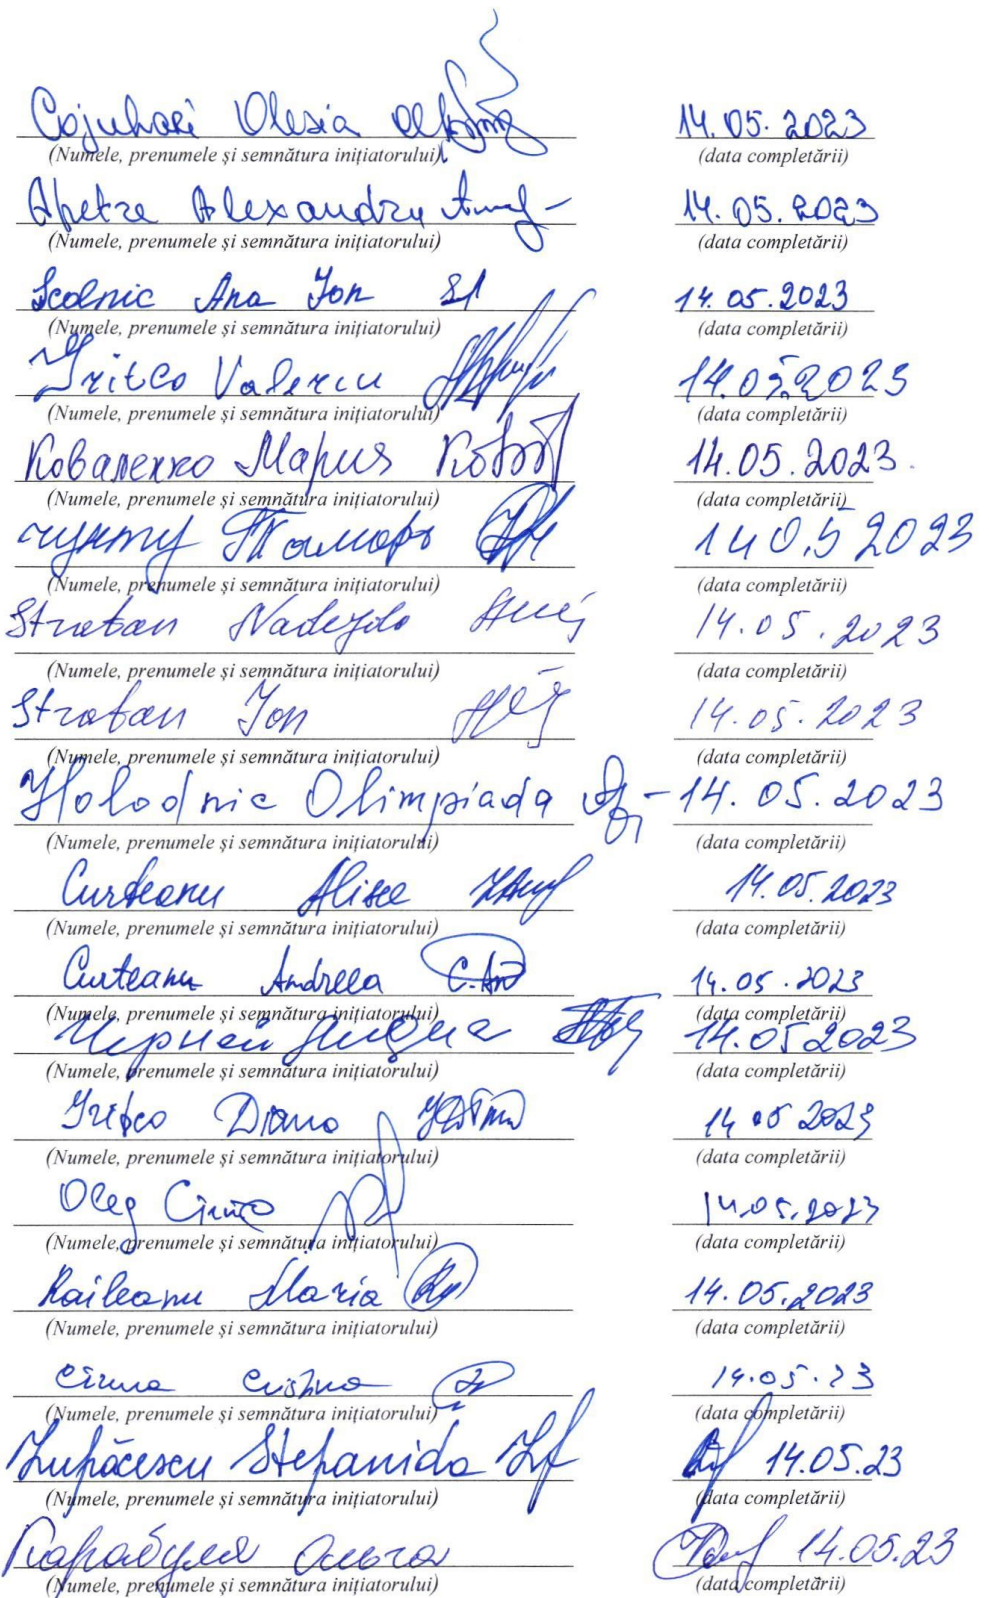 Cojuhari Olesia 14.05.2023
(Numele, prenumele și semnătura inițiatorului) (data completării)
Apetre Alexandru 14.05.2023
(Numele, prenumele și semnătura inițiatorului) (data completării)
Scolnic Ana Ion 14.05.2023
(Numele, prenumele și semnătura inițiatorului) (data completării)
Grițco Valeriu 14.05.2023
(Numele, prenumele și semnătura inițiatorului) (data completării)
Коваленко Мария 14.05.2023
(Numele, prenumele și semnătura inițiatorului) (data completării)
Тамара 14 0.5 2023
(Numele, prenumele și semnătura inițiatorului) (data completării)
Straton Nadejda 14.05.2023
(Numele, prenumele și semnătura inițiatorului) (data completării)
Straton Ion 14.05.2023
(Numele, prenumele și semnătura inițiatorului) (data completării)
Holodnic Olimpiada 14.05.2023
(Numele, prenumele și semnătura inițiatorului) (data completării)
Curteanu Alisa 14.05.2023
(Numele, prenumele și semnătura inițiatorului) (data completării)
Curteanu Andreea C.An 14.05.2023
(Numele, prenumele și semnătura inițiatorului) (data completării)
Лидия 14.05 2023
(Numele, prenumele și semnătura inițiatorului) (data completării)
Grițco Diana 14 05 2023
(Numele, prenumele și semnătura inițiatorului) (data completării)
Oleg 14.05.2023
(Numele, prenumele și semnătura inițiatorului) (data completării)
Raileanu Maria 14.05.2023
(Numele, prenumele și semnătura inițiatorului) (data completării)
Cristina 14.05.23
(Numele, prenumele și semnătura inițiatorului) (data completării)
Lupăcescu Stepanida 14.05.23
(Numele, prenumele și semnătura inițiatorului) (data completării)
Карабуля Ольга 14.05.23
(Numele, prenumele și semnătura inițiatorului) (data completării)